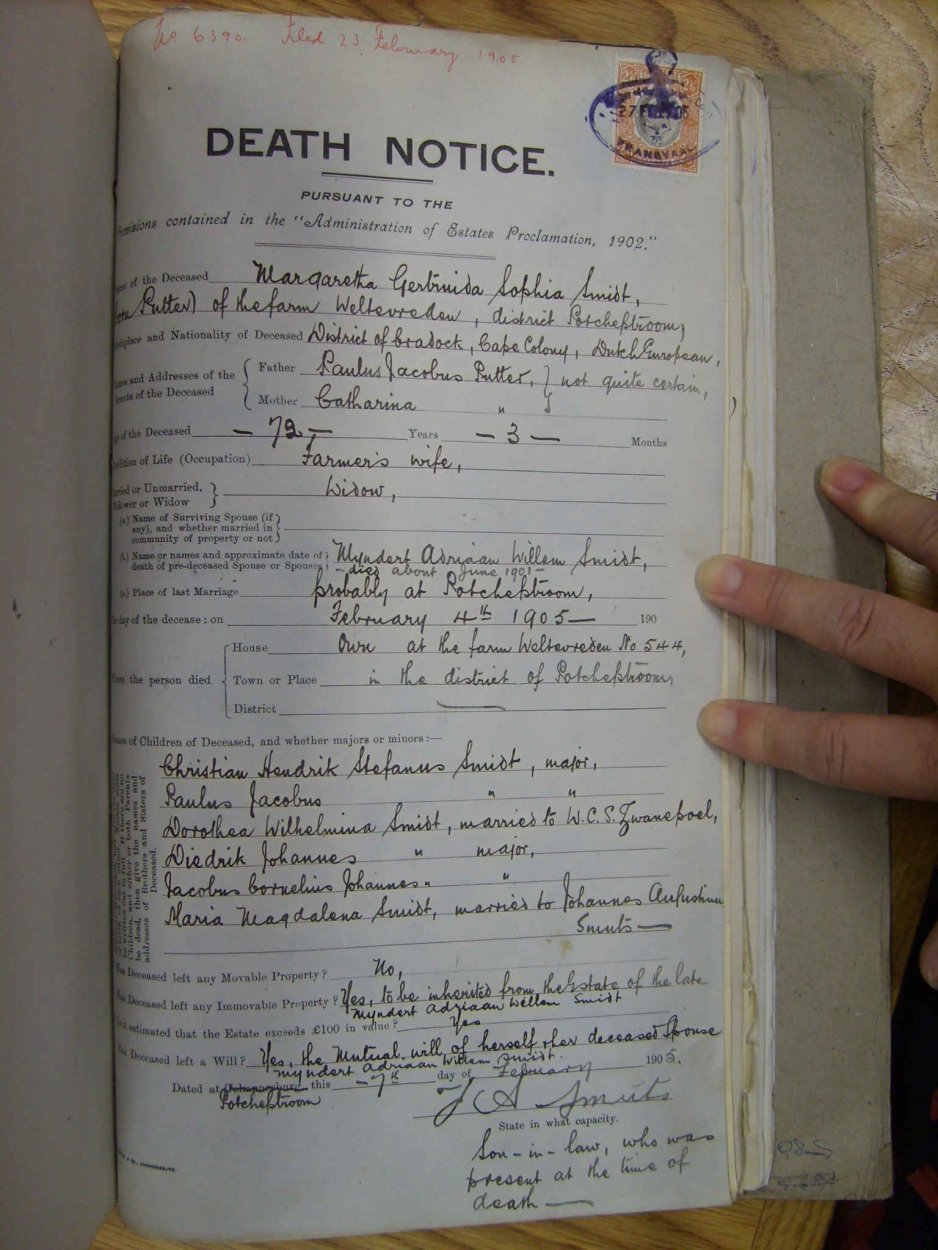 No 6390. Filed 23 February 1905
27 FE 05
TRANSVAAL
DEATH NOTICE.
PURSUANT TO THE
Provisions contained in the "Administration of Estates Proclamation, 1902."
of the Deceased Margaretha Gertruida Sophia Smidt,
Putter) of the farm Weltevreden, district Potchefstroom,
place and Nationality of Deceased District of Cradock, Cape Colony, Dutch European,
and Addresses of the Parents of the Deceased
Father Paulus Jacobus Putter, } not quite certain,
Mother Catharina "
of the Deceased – 72, – Years – 3 – Months
Condition of Life (Occupation) Farmer's wife,
Married or Unmarried, Widower or Widow } Widow,
(a.) Name of Surviving Spouse (if
any), and whether married in
community of property or not
(b.) Name or names and approximate date of
death of pre-deceased Spouse or Spouses
Myndert Adriaan Willem Smidt,
– died about June 1901 –
(c.) Place of last Marriage probably at Potchefstroom,
day of the decease: on February 4th 1905 – 190
the person died
House Own at the farm Weltevreden No 544,
Town or Place in the district of Potchefstroom,
District —
of Children of Deceased, and whether majors or minors:—
Children, and either or both Parents
be dead, then give the names and
addresses of Brothers and Sisters of
Deceased.
Christian Hendrik Stefanus Smidt, major,
Paulus Jacobus " "
Dorothea Wilhelmina Smidt, married to W.C.S. Zwanepoel,
Diedrik Johannes " major,
Jacobus Cornelius Johannes " "
Maria Magdalena Smidt, married to Johannes Augustinus
Smuts —
Deceased left any Movable Property? No,
Has Deceased left any Immovable Property? Yes, to be inherited from the Estate of the late
Myndert Adriaan Willem Smidt
estimated that the Estate exceeds £100 in value? Yes
Has Deceased left a Will? Yes, the Mutual will of herself & her deceased Spouse
Myndert Adriaan Willem Smidt.
Dated at Johannesburg this – 7th day of February 1905.
Potchefstroom
J A Smuts
State in what capacity.
Son-in-law, who was
present at the time of
death —